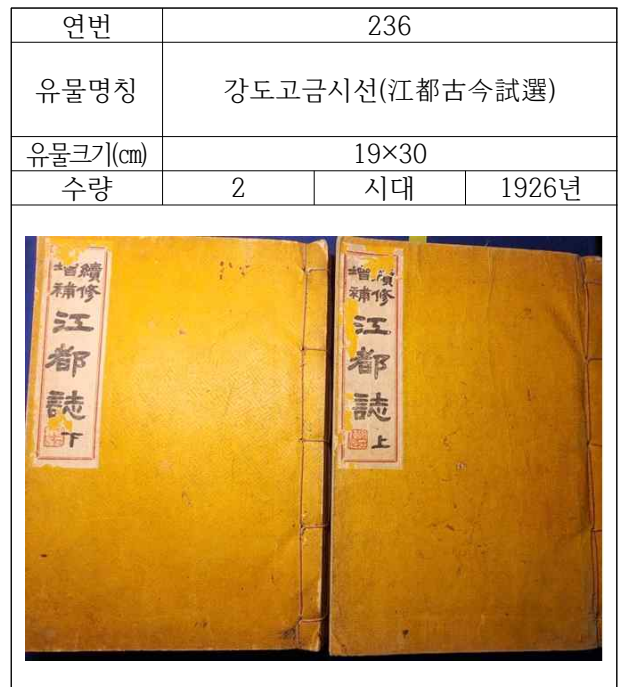 연번 236
유물명칭 강도고금시선(江都古今試選)
유물크기(㎝) 19×30
수량 2 시대 1926년
續修
增補
江都誌
下
續修
增補
江都誌
上